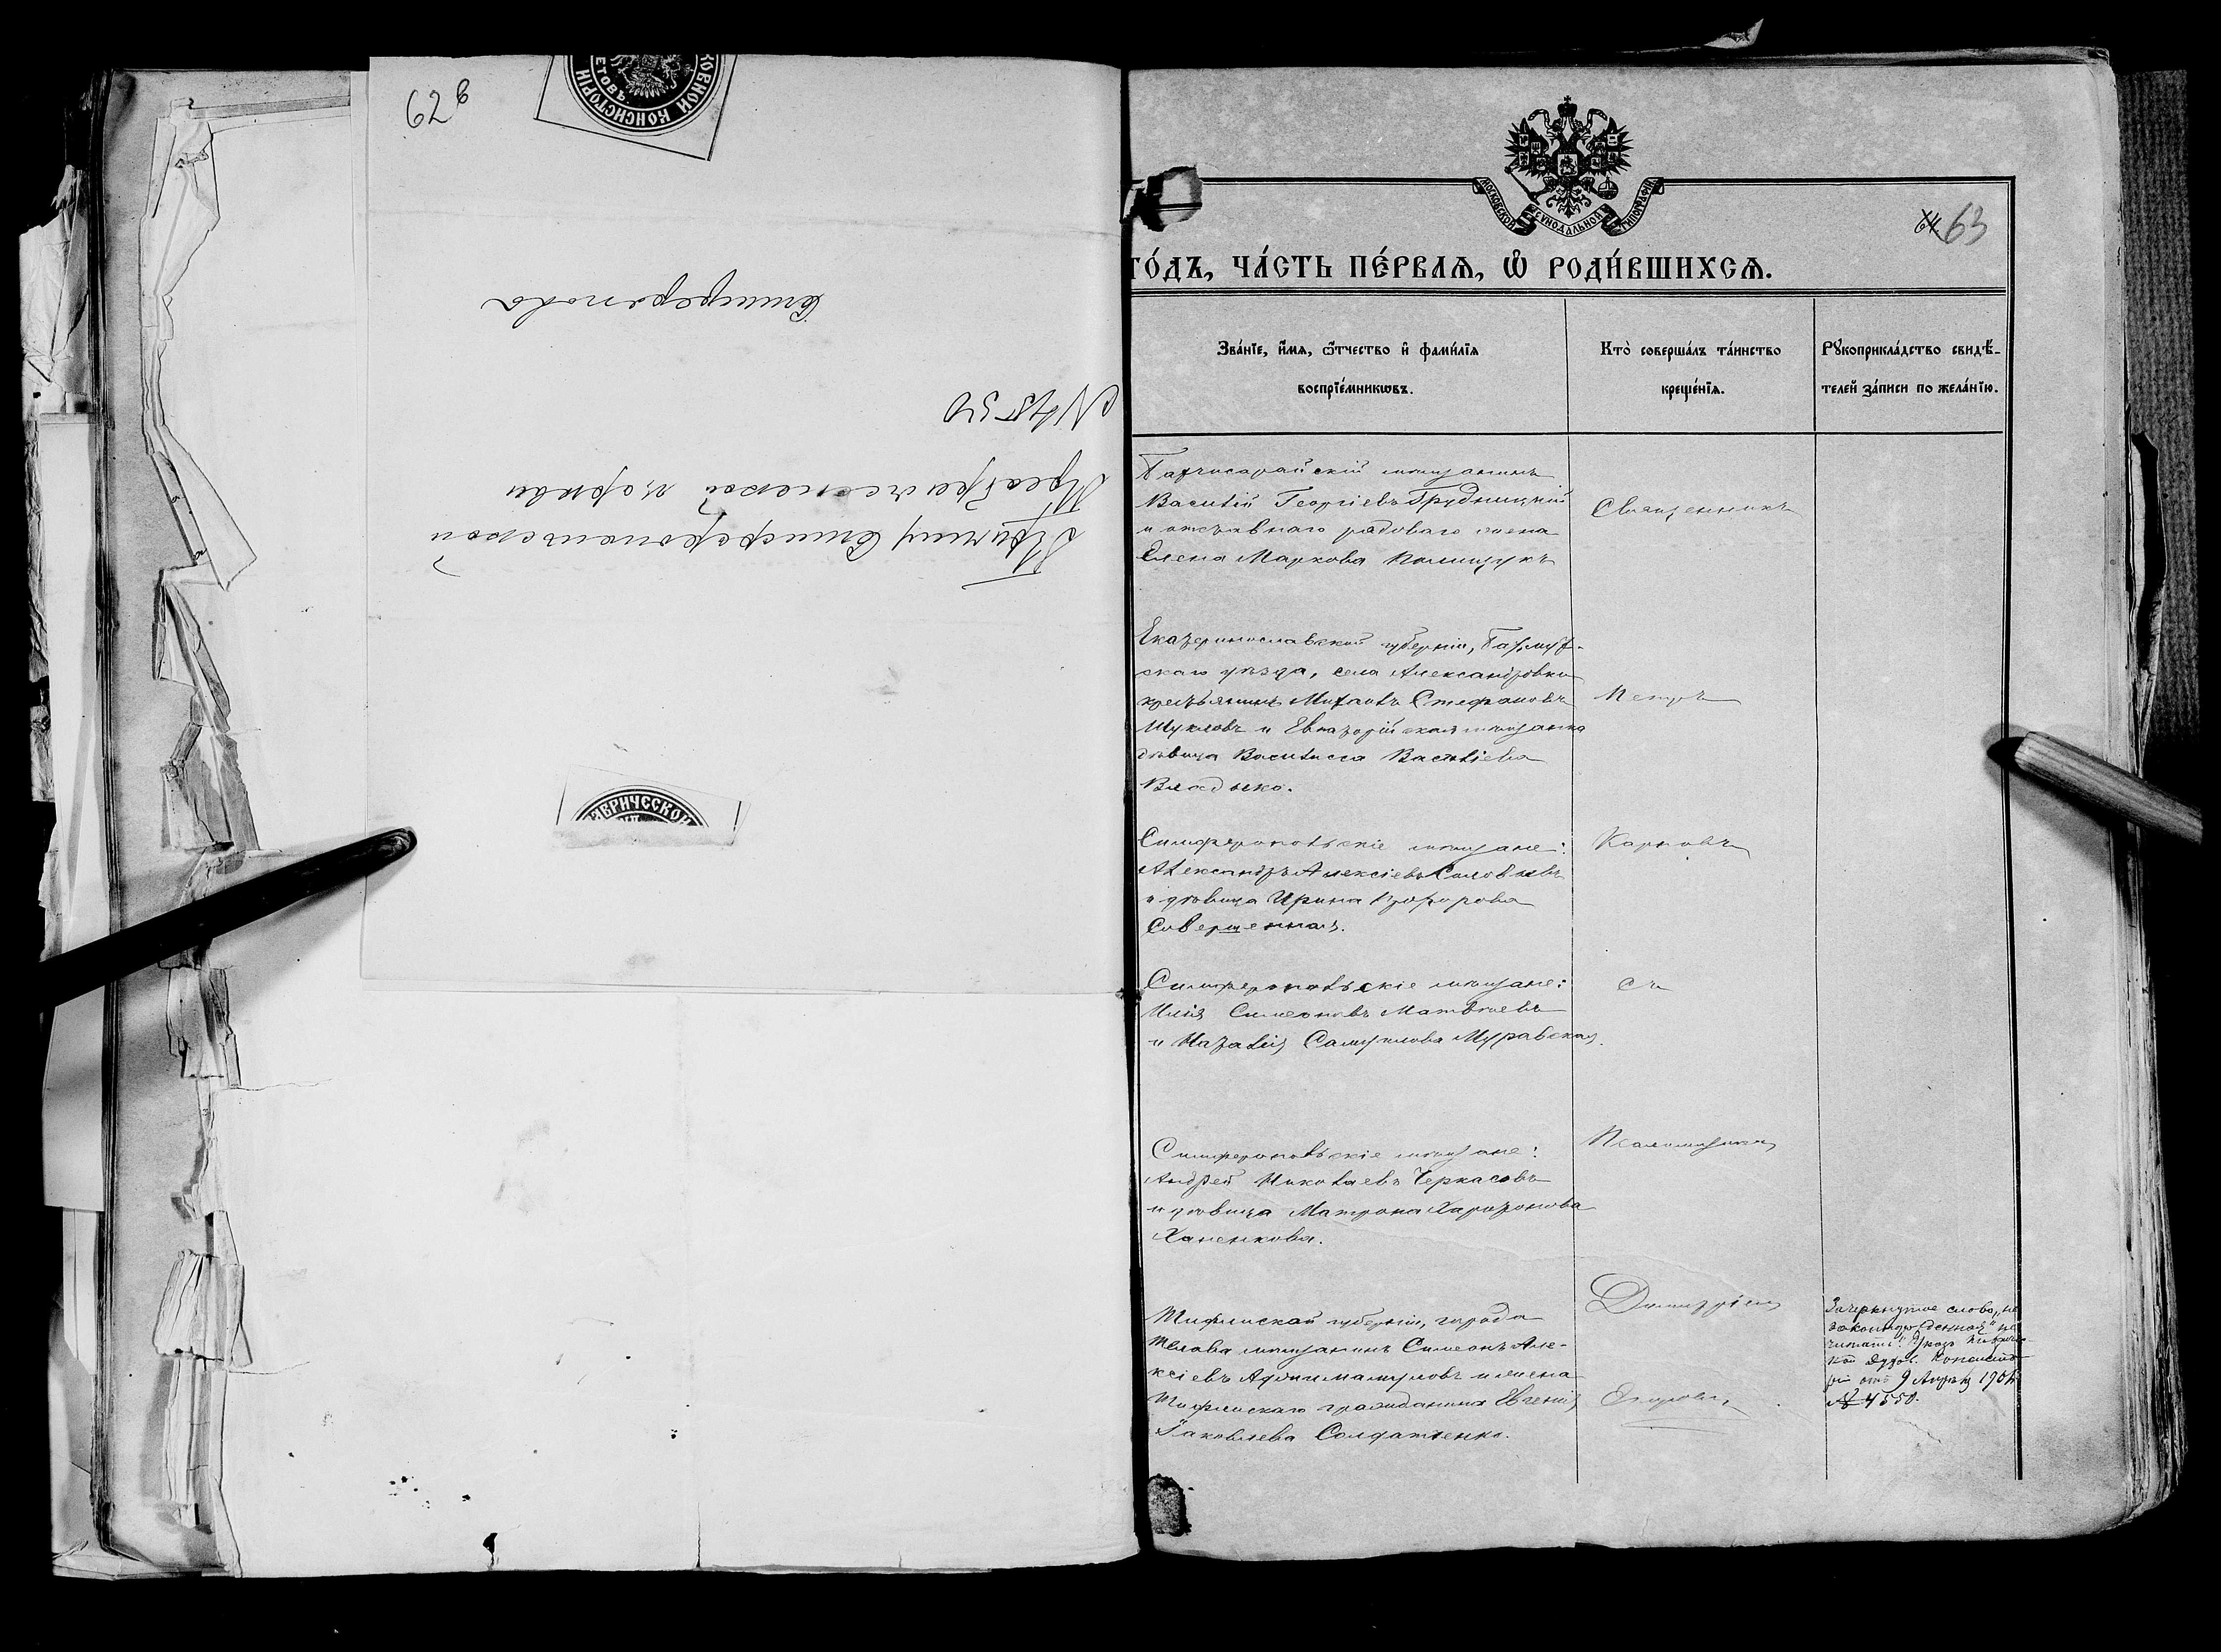 62в
ОВНОЙ КОНСИСТОРІИ
ЕТОВЪ
Симферополя
№ 4550
Преображенской церкви
Причту Симферопольской
АВРИЧЕССКОЙ
МОСКОВСКОЙ СУНОДАЛЬНОЙ ТИПОГРАФІИ
64 63
ГО́ДЪ, ЧА́СТЬ ПЕ́РВАѦ, Ѡ҆ РОДИ́ВШИХСѦ.
Зва́нїе, и҆́мѧ, ѻ҆́тчество и҆ фами́лїѧ
воспрїе́мникѡвъ.
Кто̀ соверша́лъ та́инство
креще́нїѧ.
Рꙋкоприкла́дство свидѣ́-
телей за́писи по жела́нїю.
Бахчисарайскій мѣщанинъ
Василій Георгіевъ Грудницкій
и отставнаго рядоваго жена
Елена Маркова Полищукъ
Священникъ
Екатеринославской губерніи, Бахмут-
скаго уѣзда, села Александровки
крестьянинъ Михаилъ Стефановъ
Шукловъ и Евпаторійская мѣщанка
дѣвица Василисса Васильева
Владыко.
Петръ
Симферопольскіе мѣщане:
Александръ Алексіевъ Соловьевъ
и дѣвица Ирина Ѳеодорова
Совершенная.
Карповъ
Симферопольскіе мѣщане:
Илія Симеоновъ Матвѣевъ
и Наталія Самуилова Муравская.
съ
Симферопольскіе мѣщане:
Андрей Николаевъ Черкасовъ
и дѣвица Матрона Харитонова
Ханенкова.
Псаломщикомъ
Тифлиской губерніи, города
Телава мѣщанинъ Симеонъ Але-
ксіевъ и жена
Тифлискаго гражданина Евгенія
Іаковлева Солдатенко.
Димитріемъ
Егоровымъ
Зачеркнутое слово „не
законнорожденная" не
читать. Указъ Тавриче-
кой Духов. Консисто-
ріи отъ 9 Апрѣля 1904
№ 4550.